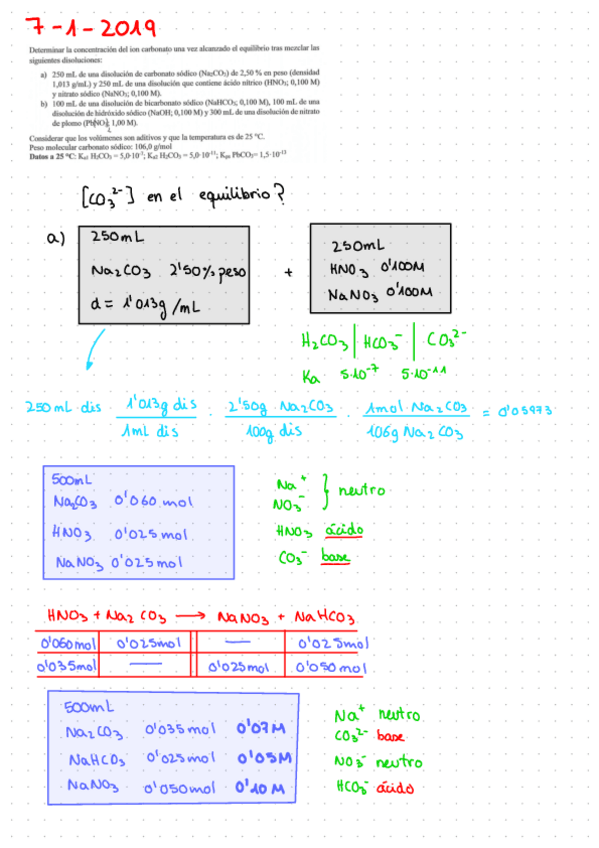 7-1-2019
Determinar la concentración del ion carbonato una vez alcanzado el equilibrio tras mezclar las
siguientes disoluciones:
a) 250 mL de una disolución de carbonato sódico (Na₂CO₃) de 2,50 % en peso (densidad
1,013 g/mL) y 250 mL de una disolución que contiene ácido nítrico (HNO₃; 0,100 M)
y nitrato sódico (NaNO₃; 0,100 M).
b) 100 mL de una disolución de bicarbonato sódico (NaHCO₃; 0,100 M), 100 mL de una
disolución de hidróxido sódico (NaOH; 0,100 M) y 300 mL de una disolución de nitrato
de plomo (Pb(NO₃)₂; 1,00 M).
Considerar que los volúmenes son aditivos y que la temperatura es de 25 °C.
Peso molecular carbonato sódico: 106,0 g/mol
Datos a 25 °C: Kₐ₁ H₂CO₃ = 5,0·10⁻⁷; Kₐ₂ H₂CO₃ = 5,0·10⁻¹¹; Kₚₛ PbCO₃= 1,5·10⁻¹³
[CO₃²⁻] en el equilibrio?
a) 250mL
Na₂CO₃ 2'50% peso
d = 1'013g/mL
+
250mL
HNO₃ 0'100M
NaNO₃ 0'100M
H₂CO₃ | HCO₃⁻ | CO₃²⁻
Ka 5·10⁻⁷ 5·10⁻¹¹
250 mL dis 1'013g dis · 2'50g Na₂CO₃ · 1mol Na₂CO₃ = 0'05973
1mL dis 100g dis 106g Na₂CO₃
500mL
Na₂CO₃ 0'060 mol
HNO₃ 0'025mol
NaNO₃ 0'025mol
Na⁺
NO₃⁻ } neutro
HNO₃ ácido
CO₃⁻ base
HNO₃ + Na₂CO₃ → NaNO₃ + NaHCO₃
0'060mol 0'025mol — 0'025mol
0'035mol — 0'025mol 0'050mol
500mL
Na₂CO₃ 0'035mol 0'07M
NaHCO₃ 0'025mol 0'05M
NaNO₃ 0'050mol 0'10M
Na⁺ neutro
CO₃²⁻ base
NO₃⁻ neutro
HCO₃⁻ ácido